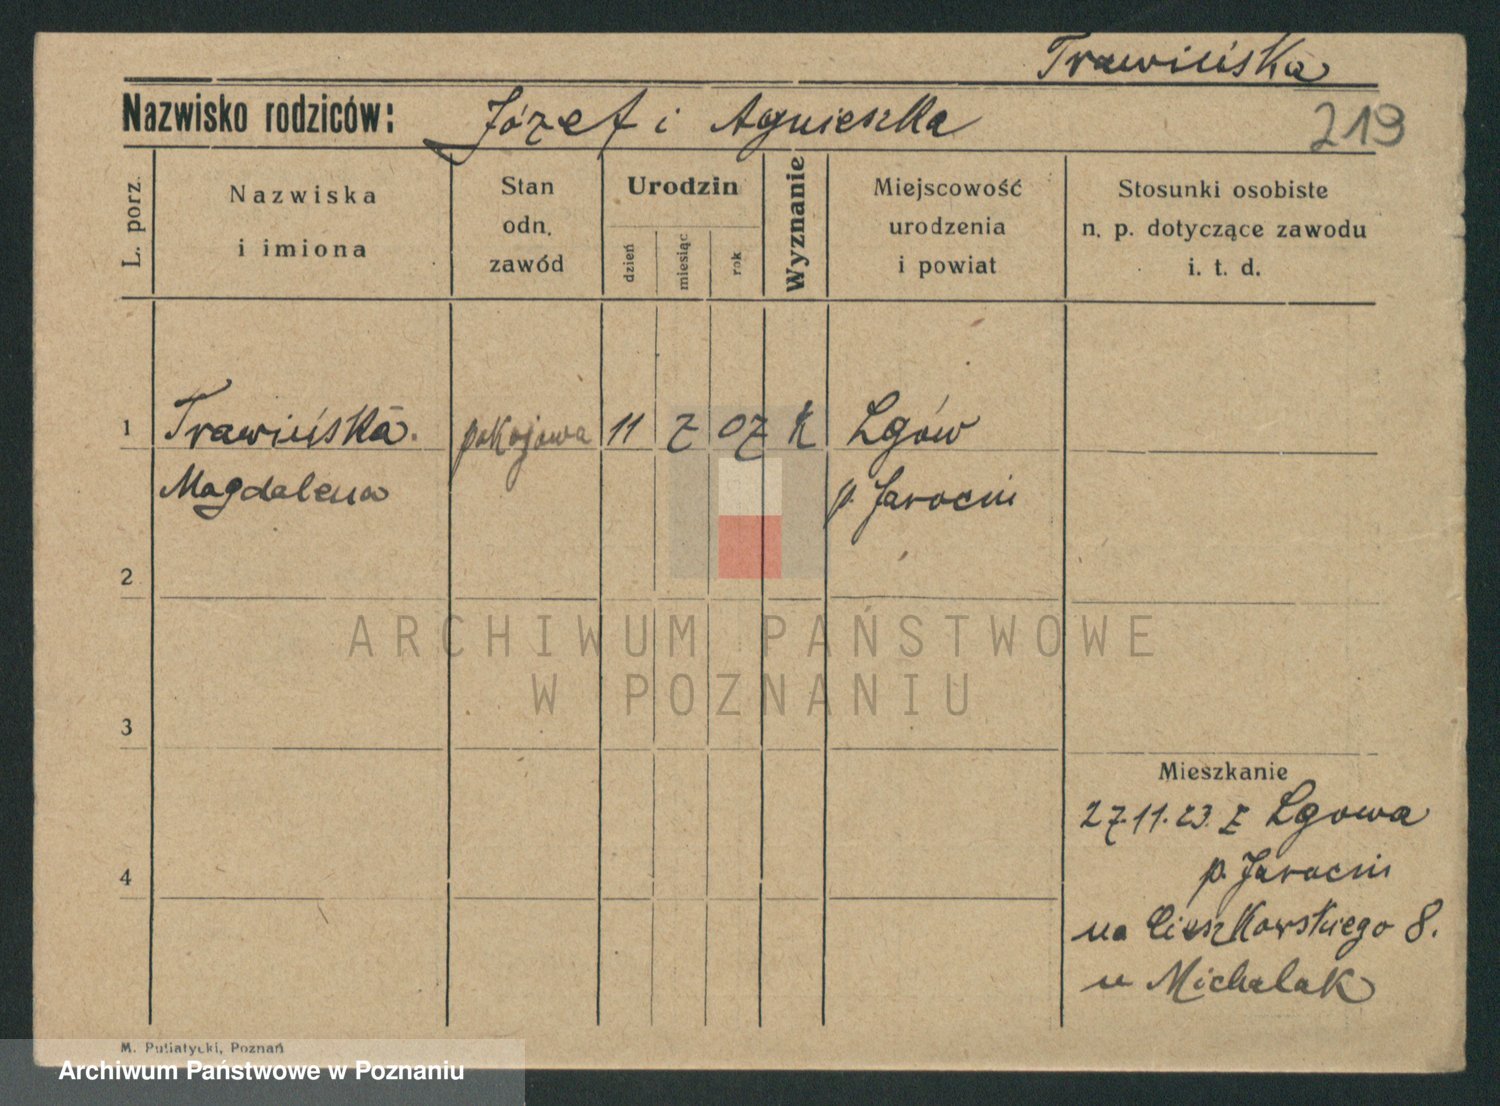 Trawińska
Nazwisko rodziców: Józef i Agnieszka
219
L. porz.
Nazwiska
i imiona
Stan
odn.
zawód
Urodzin
dzień
miesiąc
rok
Wyznanie
Miejscowość
urodzenia
i powiat
Stosunki osobiste
n. p. dotyczące zawodu
i. t. d.
1 Trawińska. pokojowa 11 7 07 k Lgów
Magdalena p. Jarocin
2
ARCHIWUM PAŃSTWOWE
W POZNANIU
3
Mieszkanie
27.11.23. z Lgowa
4 p. Jarocin
na Cieszkowskiego 8.
u Michalak
M. Putiatycki, Poznań
Archiwum Państwowe w Poznaniu